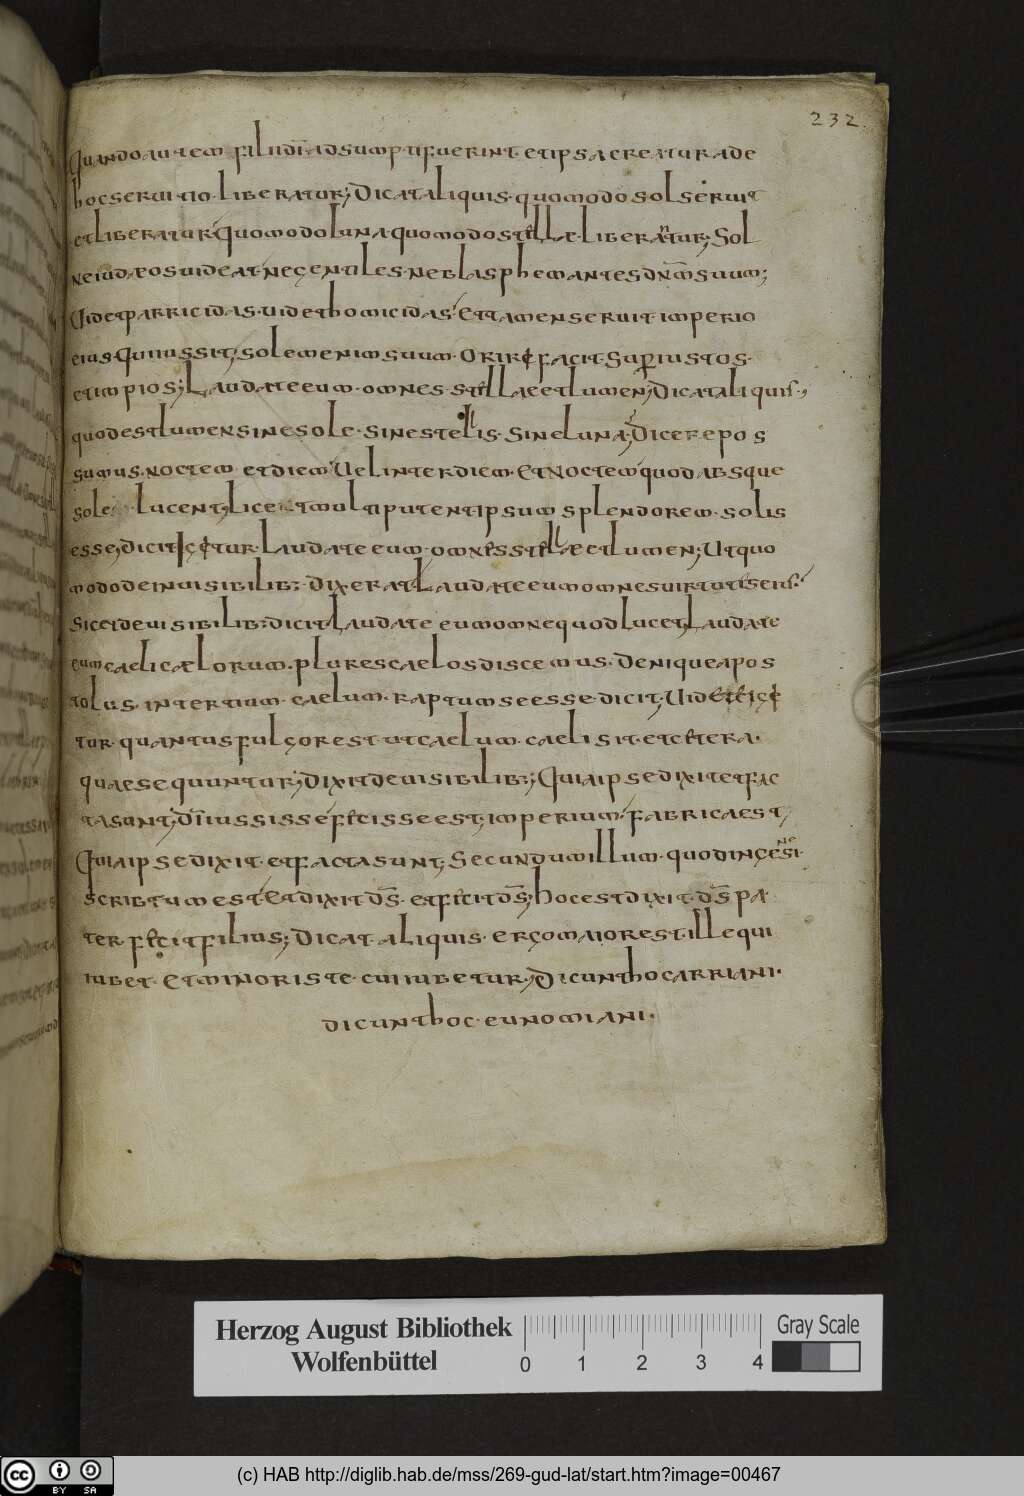 232.
Quando autem filii di adsumpti fuerint et ipsa creatura de
hoc seruitio liberatur; Dicat aliquis. quomodo sol seruit
et liberatur. Quomodo luna quomodo stellae liberantur; Sol
ne iudaeos uideat. ne gentiles. ne blasphemantes dnm suum;
Uidet parricidas. uidet homicidas. Et tamen seruit imperio
eius. Qui iussit; solem enim suum. Orire facit. Super iustos.
et impios; Laudate eum. omnes stellae et lumen; Dicat aliquis.,
quod est lumen sine sole. sine stellis. Sine luna; Dicere pos
sumus. noctem et diem. Uel inter diem. Et Noctem quod absque
sole. lucent; licet multi putent ipsum splendorem. solis
esse; dicit igetur. Laudate eum. omnes stellae et lumen; Ut quo
modo de inuisibilib; dixerat. Laudate eum omnes uirtutes eius.
Sicet de uisibilib; dicit Laudate eum omne quod lucet; Laudate
eum caeli caelorum. plures caelos discemus. Denique apos
tolus. in tertium. caelum. raptum se esse. dicit; Uidete ige
tur. quantus fulgor est ut caelum. caeli sit. et cetera.
quae sequuntur; Dixit de uisibilib; Quia ipse dixit et fac
ta sunt; Di iussisse fecisse est; imperium. fabrica est;
Quia ipse dixit. et facta sunt; Secundum illum. quod in genesi.
scribtum est. Et dixit ds. et fecit ds; hoc est dixit. ds pa
ter. fecit filius; Dicat. aliquis. ergo maior est. ille qui
iubet. Et minor iste. cui iubetur; Dicunt hoc arriani.
dicunt hoc. eunomiani.
Herzog August Bibliothek
Wolfenbüttel
0 1 2 3 4
Gray Scale
cc BY SA
(c) HAB http://diglib.hab.de/mss/269-gud-lat/start.htm?image=00467